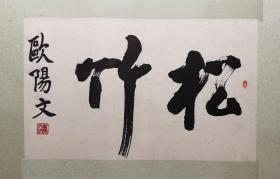 松竹
歐陽文